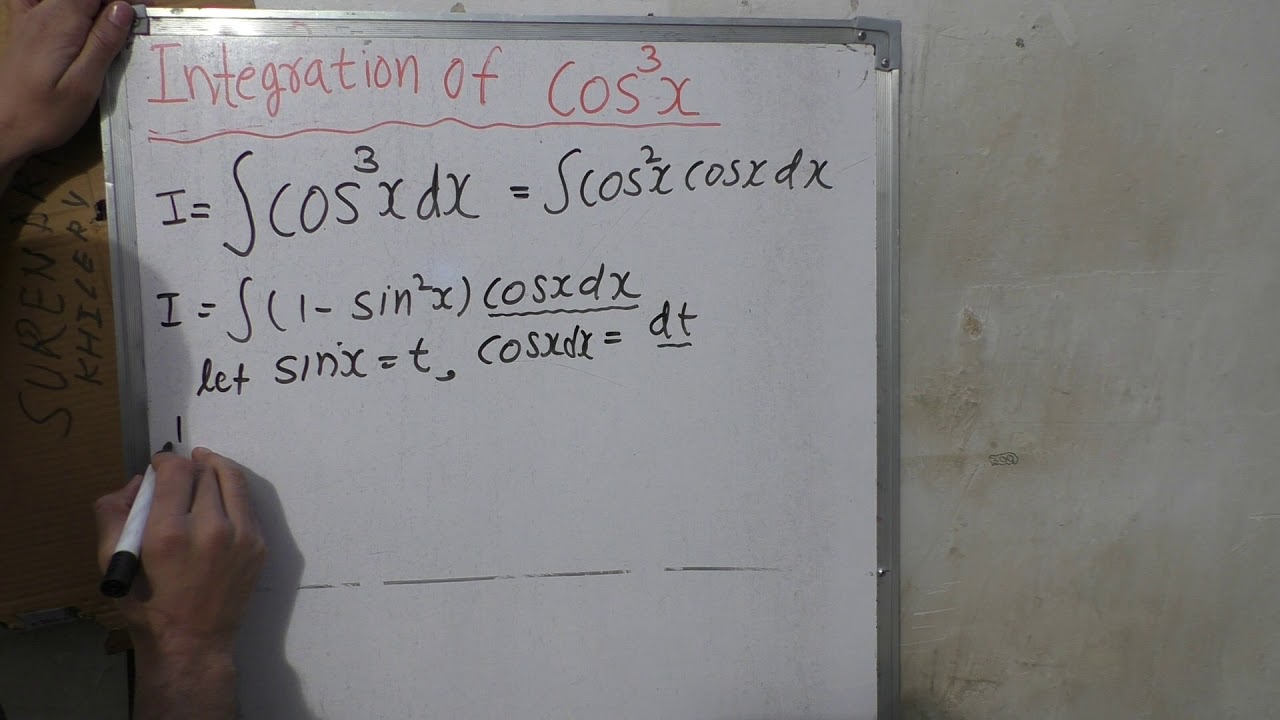 Integration of Cos³x
I = ∫cos³x dx = ∫cos²x cosx dx
I = ∫(1 - sin²x) cosx dx
let sinx = t, cosxdx = dt
I
KHILERY